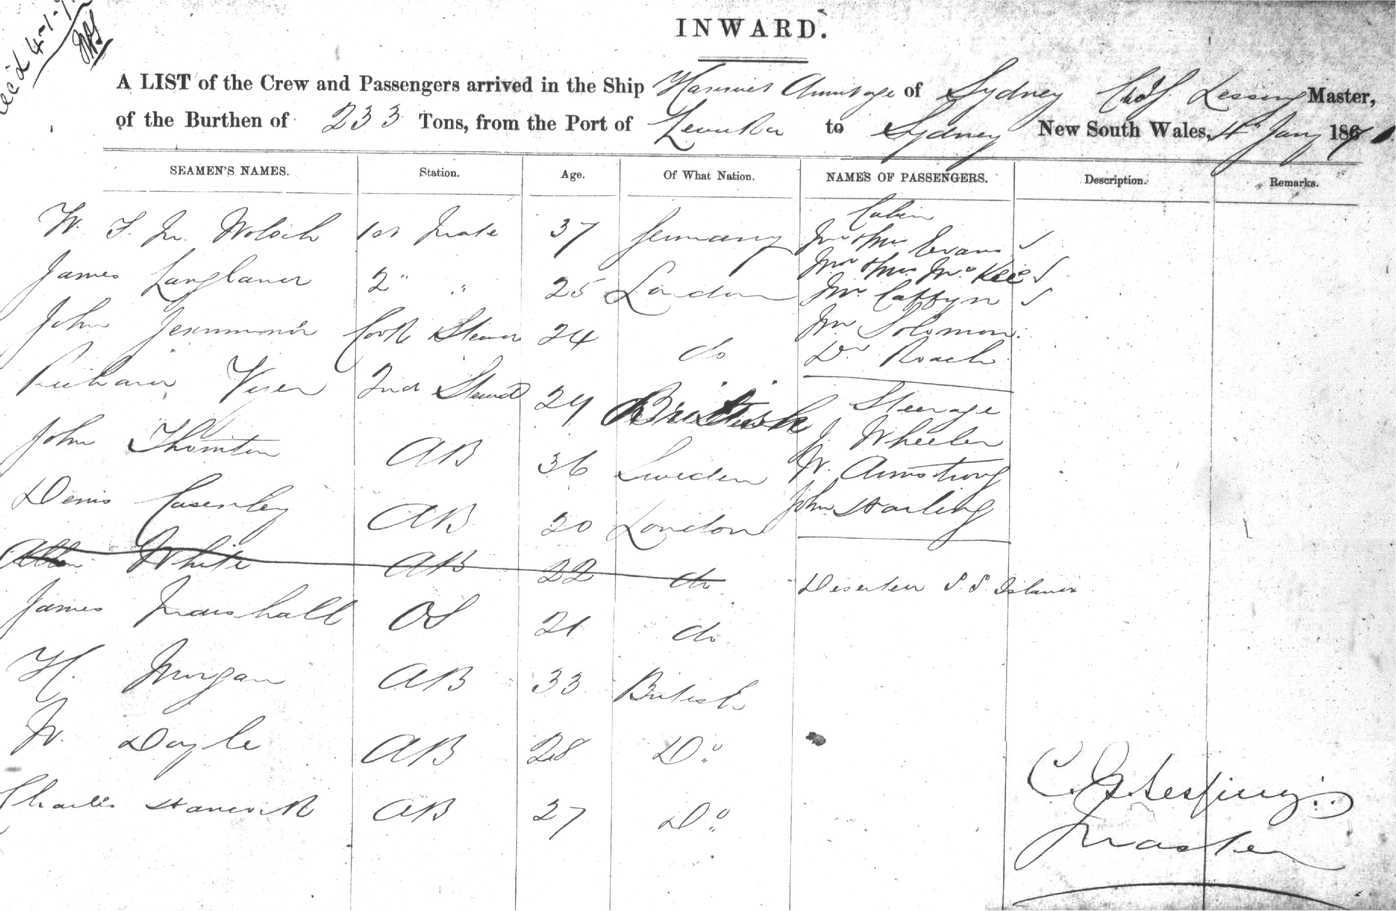 Rec'd 4-1-7
INWARD.
A LIST of the Crew and Passengers arrived in the Ship Harriet Armitage of Sydney Chas Lessing Master,
of the Burthen of 233 Tons, from the Port of Levuka to Sydney New South Wales, 4th Jany 1871
SEAMEN'S NAMES. Station. Age. Of What Nation. NAMES OF PASSENGERS. Description. Remarks.
Cabin
W. F. M. 1st Mate 37 Germany Mr & Mrs Evans
James 2 " " 25 London Mr & Mrs McKee
Mr Caffyn
John Cook Steward 24 do Mr Solomon
Dr Roach
Richard 2nd Steward 24 British Steerage
J Wheeler
John Thornton AB 36 Sweden W. Armstrong
Denis Casenley AB 20 London John Starling
Allen White AB 22 do Deserted S. S. Islands
James Marshall OS 21 do
H. Morgan AB 33 British
W. Doyle AB 28 Do
Charles Hancock AB 27 Do
C. G. Lessing
Master